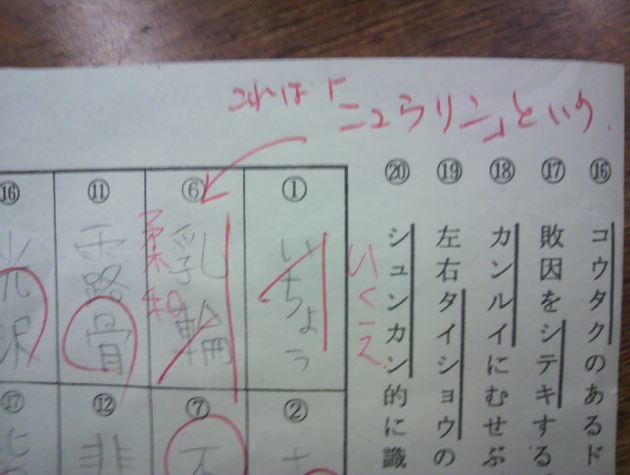 これは「ニュウリン」という.
⑯ コウタクのあるド
⑰ 敗因をシテキする
⑱ カンルイにむせぶ
⑲ 左右タイショウの
⑳ シュンカン的に識
いくえ
① いちょう
⑥ 乳輪
柔和
⑪ 露骨
⑯ 光沢
②
⑦ 不
⑫ 非
⑰